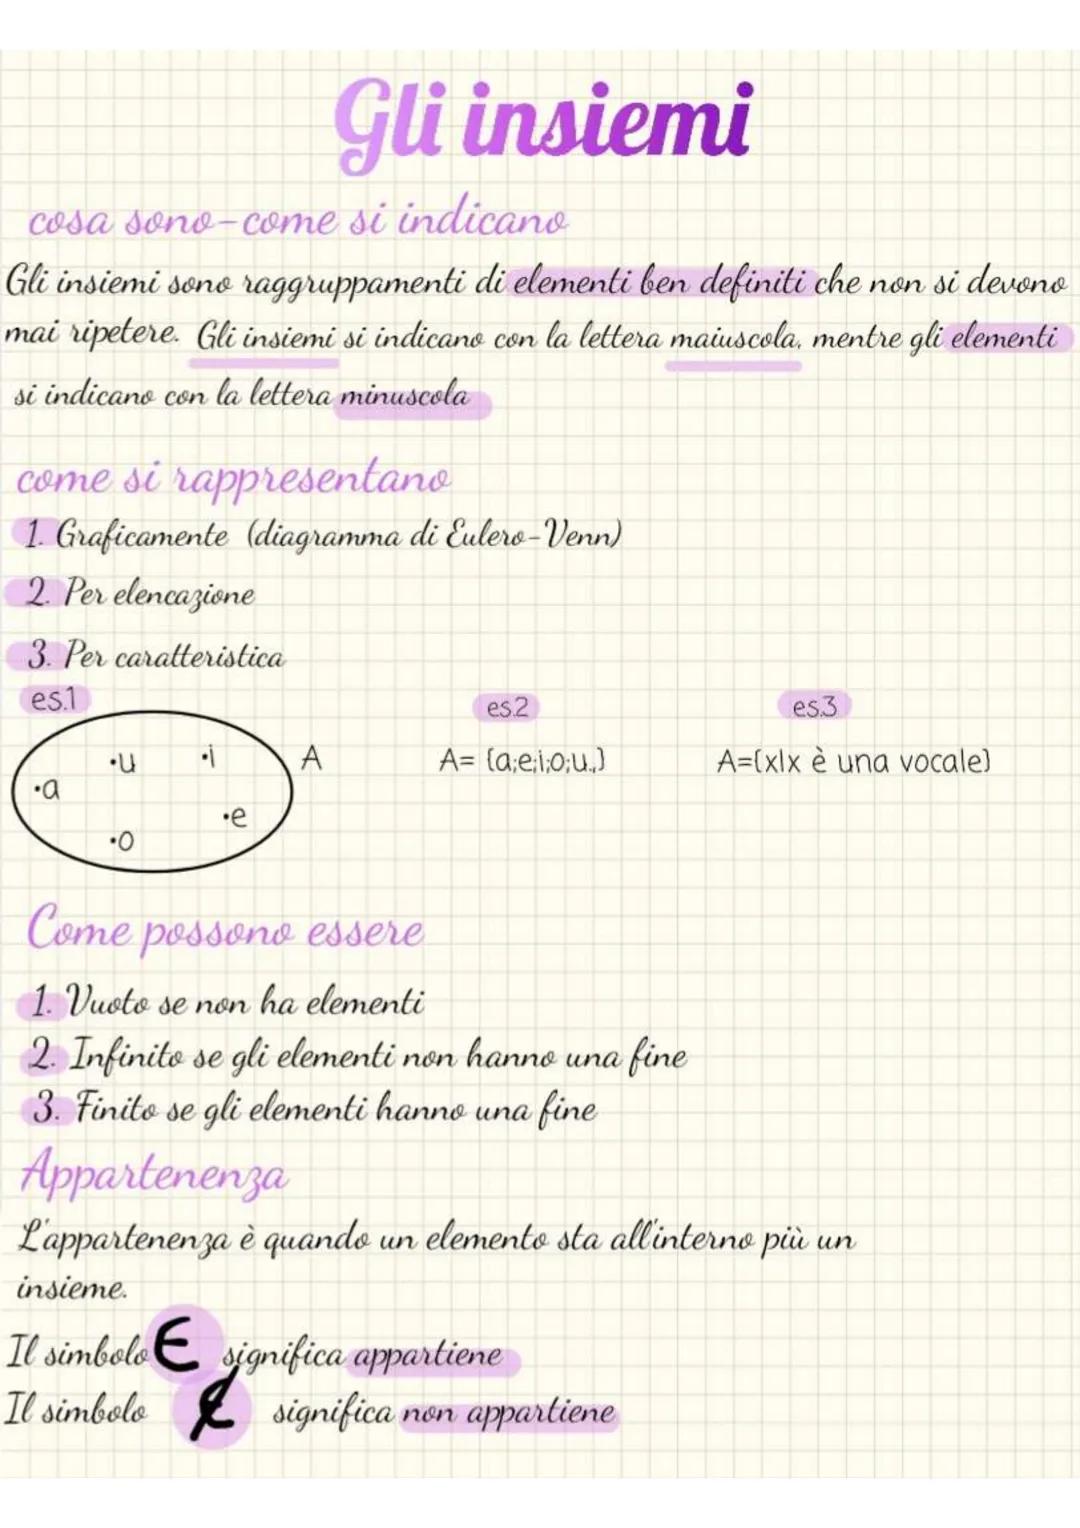 Gli insiemi
cosa sono-come si indicano
Gli insiemi sono raggruppamenti di elementi ben definiti che non si devono
mai ripetere. Gli insiemi si indicano con la lettera maiuscola, mentre gli elementi
si indicano con la lettera minuscola
come si rappresentano
1. Graficamente (diagramma di Eulero-Venn)
2. Per elencazione
3. Per caratteristica
es.1 es.2 es.3
•u •i A
•a
•e
•o
A= {a;e;i;o;u.,}
A={x|x è una vocale}
Come possono essere
1. Vuoto se non ha elementi
2. Infinito se gli elementi non hanno una fine
3. Finito se gli elementi hanno una fine
Appartenenza
L'appartenenza è quando un elemento sta all'interno più un
insieme.
Il simbolo ∈ significa appartiene
Il simbolo ∉ significa non appartiene